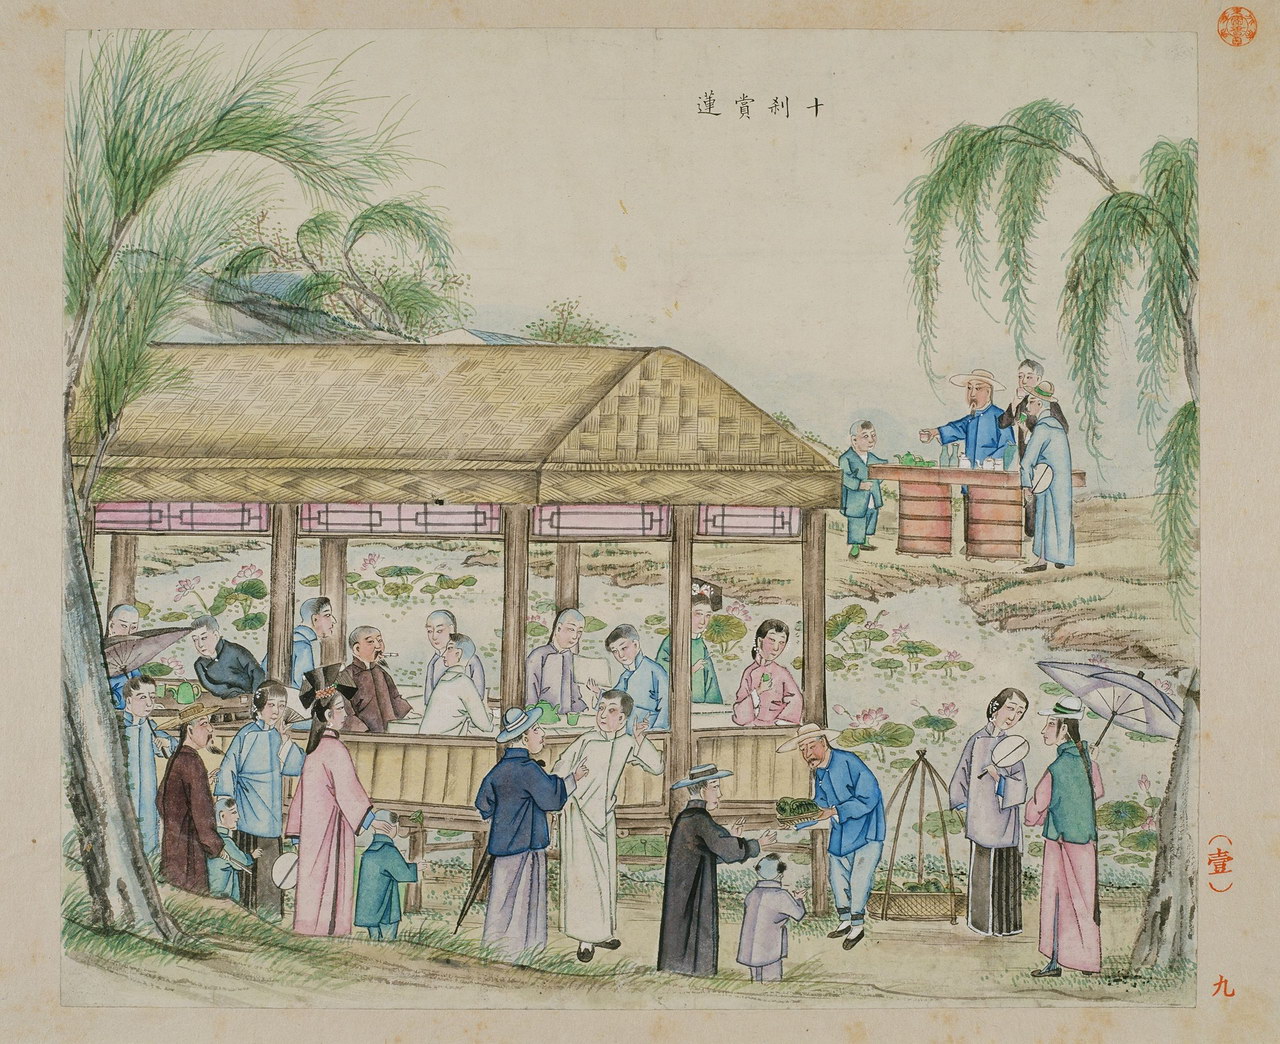 十刹賞蓮
（壹）
九